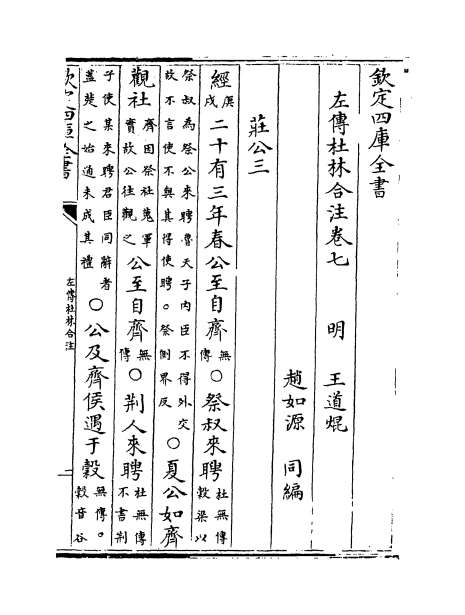 欽定四庫全書
左傳杜林合注卷七　明　王道焜
趙如源　同編
莊公三
經庚戌二十有三年春公至自齊無傳○祭叔來聘杜無傳穀梁以
祭叔為祭公來聘魯天子內臣不得外交故不言使不與其得使聘。祭側界反○夏公如齊
觀社齊因祭社蒐軍實故公往觀之公至自齊無傳○荆人來聘杜無傳不書荆
子使某來聘君臣同辭者蓋楚之始通未成其禮○公及齊侯遇于穀無傳。穀音谷
欽定四庫全書
左傳杜林合注
一